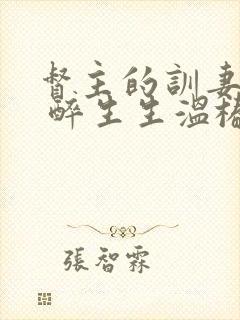 督主的訓妻
醉生生溫椿
張智霖